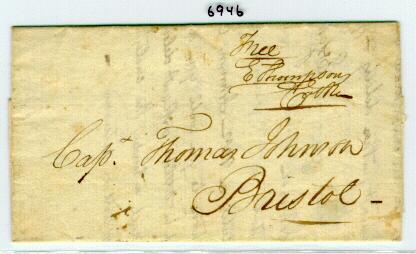 6946
Free
E Thompson
Capt. Thomas Johnson
Bristol